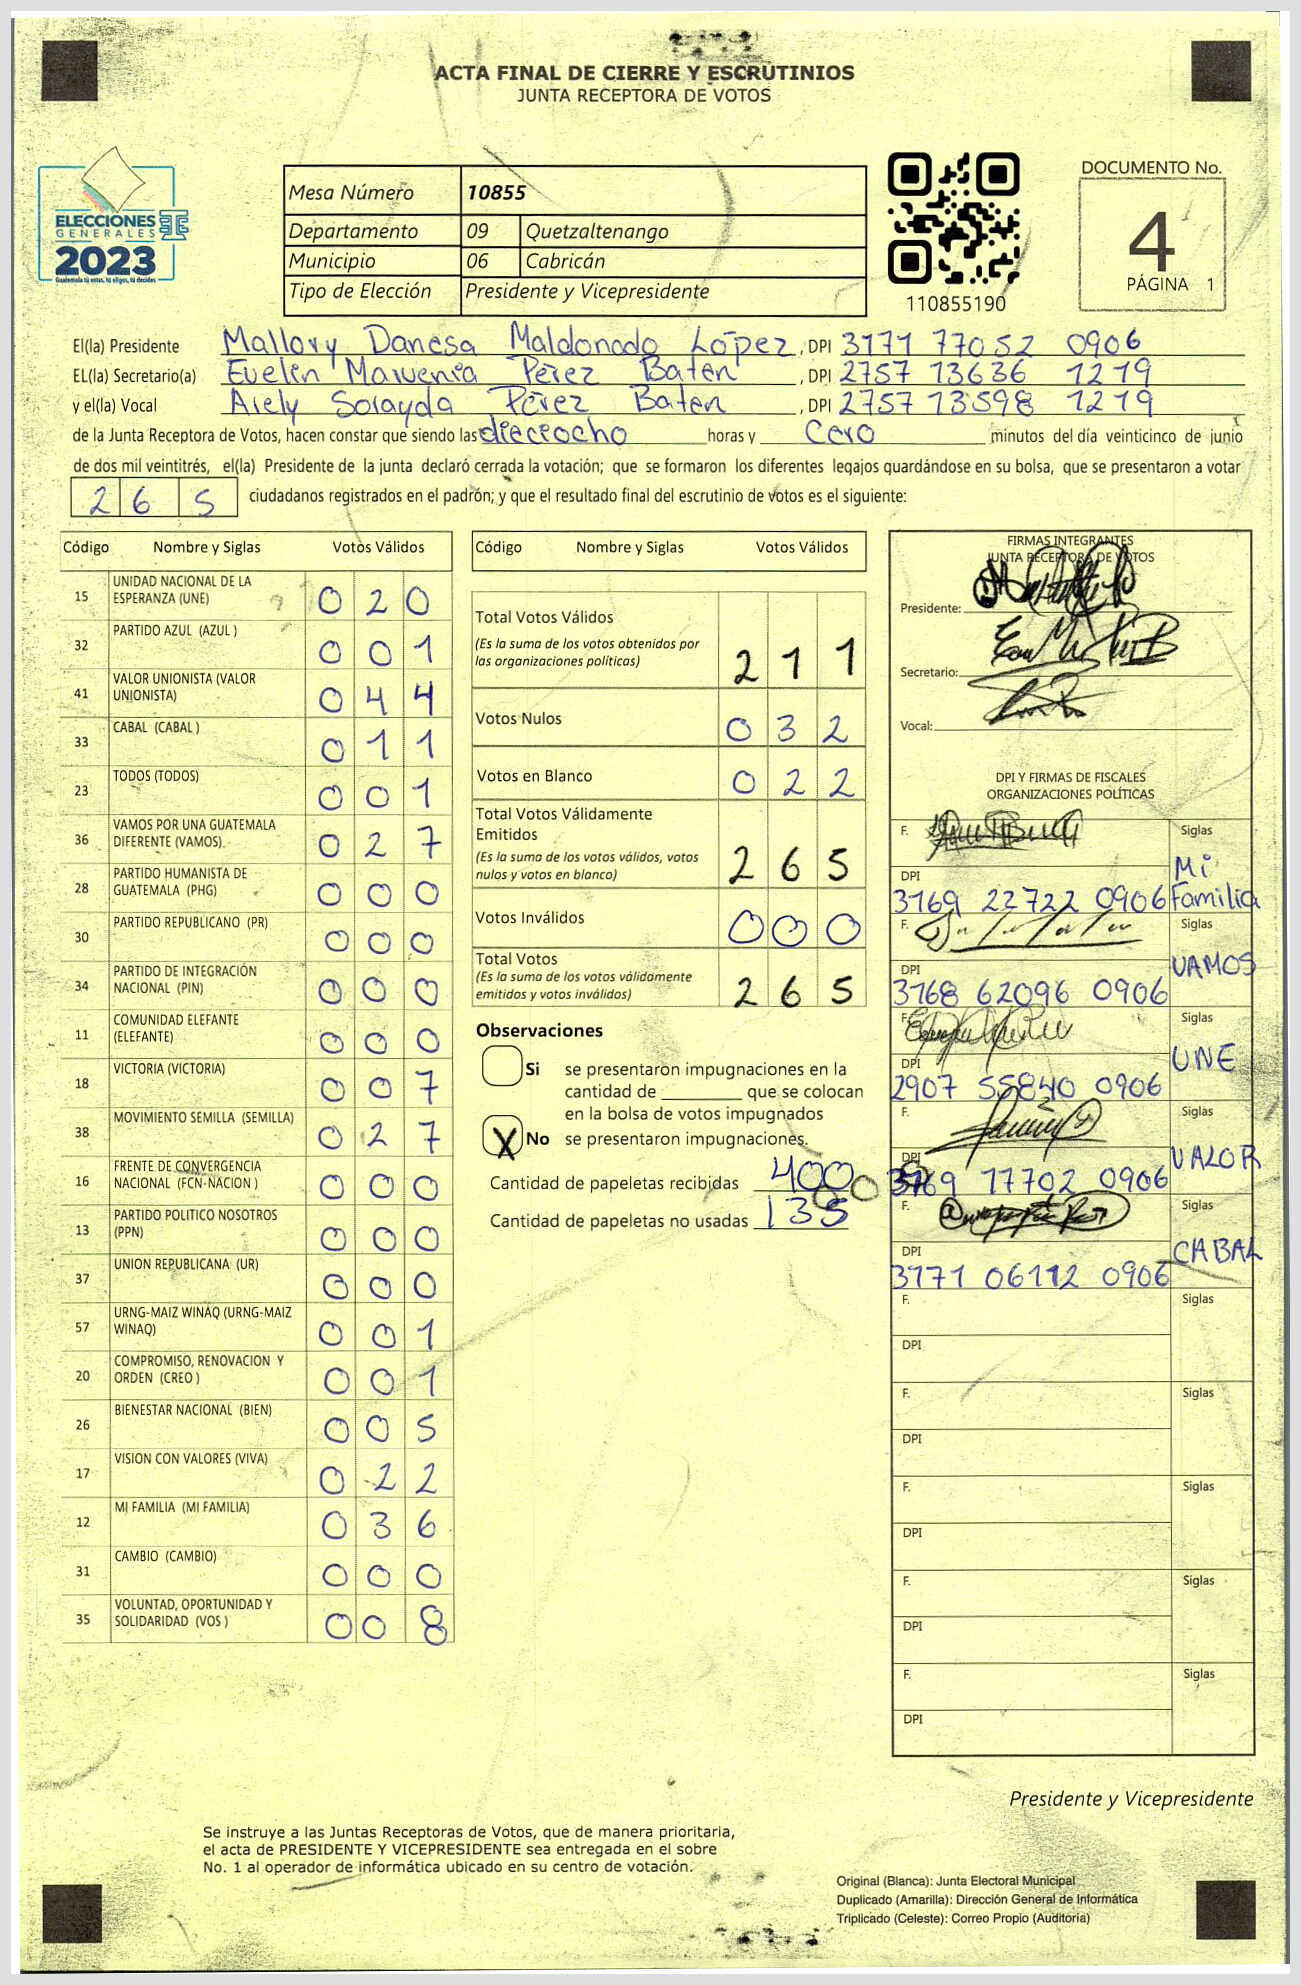 ACTA FINAL DE CIERRE Y ESCRUTINIOS
JUNTA RECEPTORA DE VOTOS
ELECCIONES
GENERALES
2023
Guatemala tú votas, tú eliges, tú decides
Mesa Número 10855
Departamento 09 Quetzaltenango
Municipio 06 Cabricán
Tipo de Elección Presidente y Vicepresidente
110855190
DOCUMENTO No.
4
PÁGINA 1
El(la) Presidente Mallory Danesa Maldonado López, DPI 3171 77052 0906
EL(la) Secretario(a) Evelin Marvenia Pérez Baten, DPI 2757 13636 1219
y el(la) Vocal Arely Sorayda Pérez Baten, DPI 2757 13598 1219
de la Junta Receptora de Votos, hacen constar que siendo las dieciocho horas y Cero minutos del día veinticinco de junio
de dos mil veintitrés, el(la) Presidente de la junta declaró cerrada la votación; que se formaron los diferentes legajos guardándose en su bolsa, que se presentaron a votar
2 6 5 ciudadanos registrados en el padrón; y que el resultado final del escrutinio de votos es el siguiente:
Código Nombre y Siglas Votos Válidos
15 UNIDAD NACIONAL DE LA ESPERANZA (UNE) 0 2 0
32 PARTIDO AZUL (AZUL ) 0 0 1
41 VALOR UNIONISTA (VALOR UNIONISTA) 0 4 4
33 CABAL (CABAL ) 0 1 1
23 TODOS (TODOS) 0 0 1
36 VAMOS POR UNA GUATEMALA DIFERENTE (VAMOS) 0 2 7
28 PARTIDO HUMANISTA DE GUATEMALA (PHG) 0 0 0
30 PARTIDO REPUBLICANO (PR) 0 0 0
34 PARTIDO DE INTEGRACIÓN NACIONAL (PIN) 0 0 0
11 COMUNIDAD ELEFANTE (ELEFANTE) 0 0 0
18 VICTORIA (VICTORIA) 0 0 7
38 MOVIMIENTO SEMILLA (SEMILLA) 0 2 7
16 FRENTE DE CONVERGENCIA NACIONAL (FCN-NACION ) 0 0 0
13 PARTIDO POLITICO NOSOTROS (PPN) 0 0 0
37 UNION REPUBLICANA (UR) 0 0 0
57 URNG-MAIZ WINAQ (URNG-MAIZ WINAQ) 0 0 1
20 COMPROMISO, RENOVACION Y ORDEN (CREO ) 0 0 1
26 BIENESTAR NACIONAL (BIEN) 0 0 5
17 VISION CON VALORES (VIVA) 0 2 2
12 MI FAMILIA (MI FAMILIA) 0 3 6
31 CAMBIO (CAMBIO) 0 0 0
35 VOLUNTAD, OPORTUNIDAD Y SOLIDARIDAD (VOS ) 0 0 8
Código Nombre y Siglas Votos Válidos
Total Votos Válidos
(Es la suma de los votos obtenidos por
las organizaciones políticas) 2 1 1
Votos Nulos 0 3 2
Votos en Blanco 0 2 2
Total Votos Válidamente
Emitidos
(Es la suma de los votos válidos, votos
nulos y votos en blanco) 2 6 5
Votos Inválidos 0 0 0
Total Votos
(Es la suma de los votos válidamente
emitidos y votos inválidos) 2 6 5
Observaciones
Si se presentaron impugnaciones en la
cantidad de ________ que se colocan
en la bolsa de votos impugnados
X No se presentaron impugnaciones.
Cantidad de papeletas recibidas 400
Cantidad de papeletas no usadas 135
FIRMAS INTEGRANTES
JUNTA RECEPTORA DE VOTOS
Presidente:
Secretario:
Vocal:
DPI Y FIRMAS DE FISCALES
ORGANIZACIONES POLÍTICAS
F. Siglas
DPI Mi
3169 22722 0906 Familia
F. Siglas
DPI VAMOS
3168 62096 0906
F. Siglas
DPI UNE
2907 55840 0906
F. Siglas
DPI VALOR
3169 17702 0906
F. Siglas
DPI CABAL
3171 06112 0906
F. Siglas
DPI
F. Siglas
DPI
F. Siglas
DPI
F. Siglas
DPI
F. Siglas
DPI
Presidente y Vicepresidente
Se instruye a las Juntas Receptoras de Votos, que de manera prioritaria,
el acta de PRESIDENTE Y VICEPRESIDENTE sea entregada en el sobre
No. 1 al operador de informática ubicado en su centro de votación.
Original (Blanca): Junta Electoral Municipal
Duplicado (Amarilla): Dirección General de Informática
Triplicado (Celeste): Correo Propio (Auditoria)